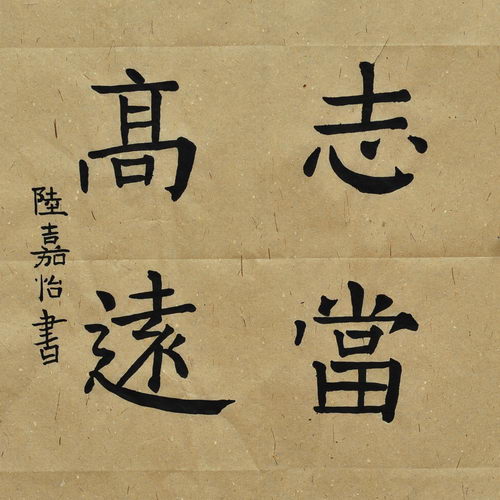 志當
高遠
陸嘉怡書